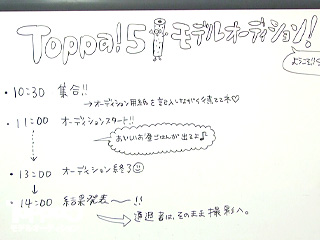 Toppa!5 モデルオーディション!
ようこそ!!
・10:30 集合!!
→オーディション用紙を記入しながら待っててネ♡
・11:00 オーディションスタート!!
おいしいお昼ごはんが出るよ♪
・13:00 オーディション終了☺
・14:00 結果発表〜!!
通過者は、そのまま撮影へ。